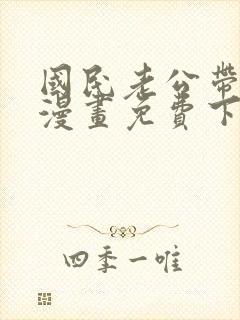 國民老公帶
漫畫免費下
四季一唯